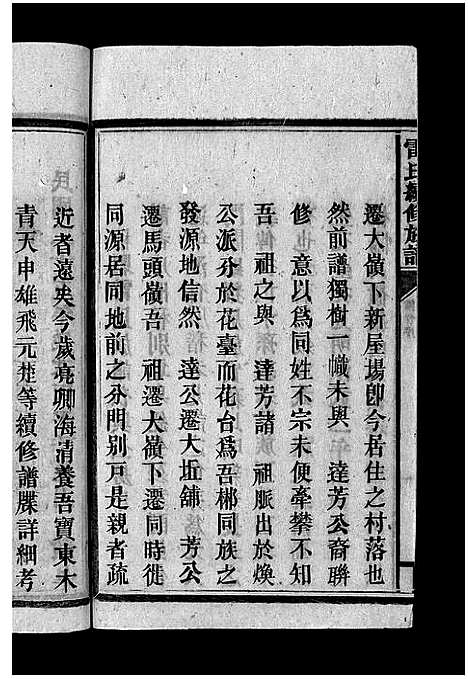 雷氏續修族譜
遷大嶺下新屋場卽今居住之村落也
然前譜獨樹一幟未與 達芳公裔聯
修 意以爲同姓不宗未便牽攀不知
吾傳祖之與 達芳諸 祖脈出於煥
公派分於花臺而花台爲吾郴同族之
發源地信然 達公遷大坵鋪 芳公
遷馬頭嶺吾 祖遷大嶺下遷同時徙
同源居同地前之分門别戸是親者疏
近者遠矣今歲亮卿海清養吾寶東木
青天申雄飛元楚等續修譜牒詳細考